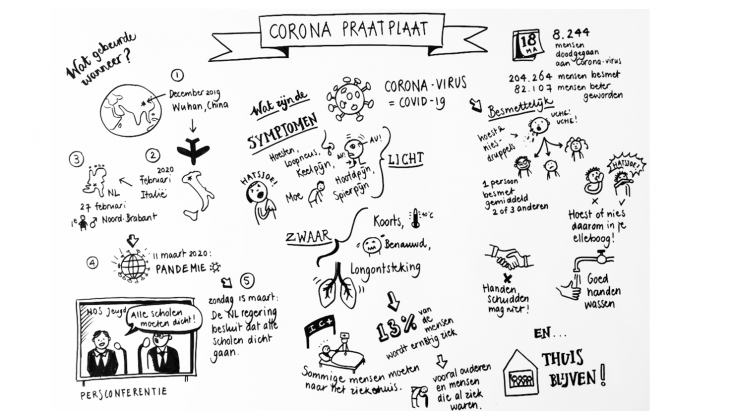 CORONA PRAATPLAAT
Wat gebeurde
wanneer?
1
December 2019
Wuhan, China
2
Februari 2020
Italië
3
NL
27 februari
1e
Noord-Brabant
4
11 maart 2020:
PANDEMIE
5
zondag 15 maart:
De NL regering
besluit dat alle
scholen dicht
gaan.
NOS Jeugd
Alle scholen
moeten dicht!
PERSCONFERENTIE
CORONA-VIRUS
= COVID-19
Wat zijn de
SYMPTOMEN
HATSJOE!
Hoesten,
Loopneus,
Keelpijn,
AU!
AU!
Hoofdpijn,
Spierpijn
Moe
LICHT
ZWAAR
Koorts,
40°C
Benauwd,
Longontsteking
I C +
Sommige mensen moeten
naar het ziekenhuis.
13% van
de
mensen
wordt ernstig ziek
vooral ouderen
en mensen
die al ziek
waren.
18
MA
8.244
mensen
doodgegaan
aan Corona-virus
204.264 mensen besmet
82.107 mensen beter
geworden
Besmettelijk
UCHE!
UCHE!
hoest &
nies-
druppels
1 persoon
besmet
gemiddeld
2 of 3 anderen
HATSJOE!
Hoest of nies
daarom in je
elleboog!
Handen
schudden
mag niet!
Goed
handen
wassen
EN...
THUIS
BLIJVEN!